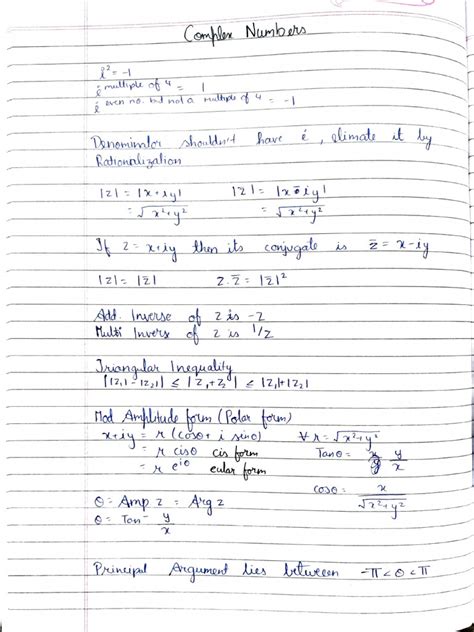 Complex Numbers
i² = -1
i multiple of 4 = 1
i even no. but not a multiple of 4 = -1
Denominator shouldn't have i, elimate it by
Rationalization
|z| = |x+iy| |z| = |x-iy|
= √x²+y² = √x²+y²
If z = x+iy then its conjugate is z̄ = x-iy
|z| = |z̄| z.z̄ = |z|²
Add. Inverse of z is -z
Multi Invers of z is 1/z
Triangular Inequality
||z₁|-|z₂|| ≤ |z₁+z₂| ≤ |z₁|+|z₂|
Mod Amplitude form (Polar form)
x+iy = r (cosθ + i sinθ) ∀ r = √x²+y²
= r cisθ cis form Tanθ = y/x
= r e^iθ eular form
cosθ = x/√x²+y²
θ = Amp z = Arg z
θ = Tan⁻ y/x
Principal Argument lies between -π < θ < π